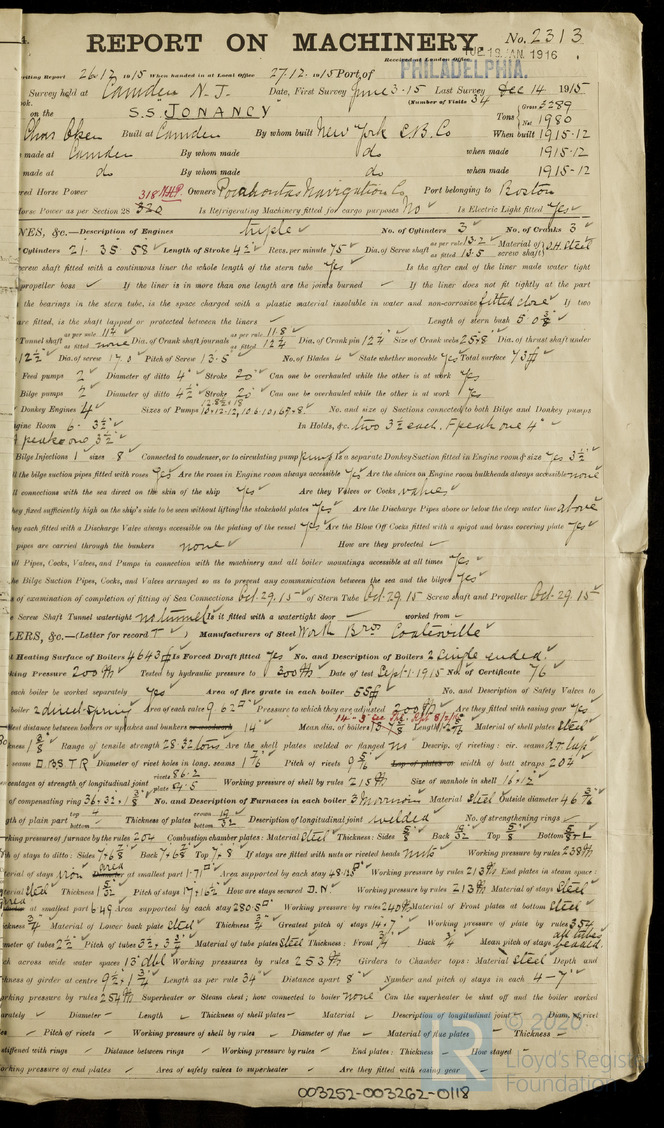 4.
REPORT ON MACHINERY. No. 2313
Received at London Office TUE. 18 JAN. 1916
writing Report 26.12 1915 When handed in at Local Office 27.12.1915 Port of PHILADELPHIA.
Survey held at Camden N.J. Date, First Survey June 3-15 Last Survey Dec 14 1915
(Number of Visits 34
on the S.S. "JONANCY" Tons Gross 3289 Net 1980
Built at Camden By whom built New York S.B. Co When built 1915-12
made at Camden By whom made do when made 1915-12
made at do By whom made do when made 1915-12
Horse Power Owners Pocahontas Navigation Co Port belonging to Boston
Horse Power as per Section 28 318 NHP Is Refrigerating Machinery fitted for cargo purposes No Is Electric Light fitted Yes
NES, &c.—Description of Engines triple No. of Cylinders 3 No. of Cranks 3
Cylinders 21. 35 58 Length of Stroke 42 Revs. per minute 75 Dia. of Screw shaft as per rule 13.2 as fitted 13.5 Material of screw shaft S.H. Steel
screw shaft fitted with a continuous liner the whole length of the stern tube Yes Is the after end of the liner made water tight
propeller boss ✓ If the liner is in more than one length are the joints burned ✓ If the liner does not fit tightly at the part
the bearings in the stern tube, is the space charged with a plastic material insoluble in water and non-corrosive fitted close If two
are fitted, is the shaft lapped or protected between the liners ✓ Length of stern bush 5'0 3/8"
Tunnel shaft as per rule as fitted none Dia. of Crank shaft journals as per rule 11.8 as fitted 12 1/4 Dia. of Crank pin 12 1/4 Size of Crank webs 25x8 Dia. of thrust shaft under
12 1/2 Dia. of screw 17.0 Pitch of Screw 13.5 No. of Blades 4 State whether moveable Yes Total surface 73
Feed pumps 2 Diameter of ditto 4" Stroke 20" Can one be overhauled while the other is at work Yes
Bilge pumps 2 Diameter of ditto 4 1/2 Stroke 20" Can one be overhauled while the other is at work Yes
Donkey Engines 4 Sizes of Pumps No. and size of Suctions connected to both Bilge and Donkey pumps
gine Room 6. 3 1/2 In Holds, &c. two 3 1/2 each. F peak one 4"
peak one 3 1/2
Bilge Injections 1 sizes 8 Connected to condenser, or to circulating pump pump Is a separate Donkey Suction fitted in Engine room & size Yes 3 1/2
ll the bilge suction pipes fitted with roses Yes Are the roses in Engine room always accessible Yes Are the sluices on Engine room bulkheads always accessible none
ll connections with the sea direct on the skin of the ship Yes Are they Valves or Cocks valves
they fixed sufficiently high on the ship's side to be seen without lifting the stokehold plates Yes Are the Discharge Pipes above or below the deep water line above
they each fitted with a Discharge Valve always accessible on the plating of the vessel Yes Are the Blow Off Cocks fitted with a spigot and brass covering plate Yes
pipes are carried through the bunkers none How are they protected ✓
ll Pipes, Cocks, Valves, and Pumps in connection with the machinery and all boiler mountings accessible at all times Yes
he Bilge Suction Pipes, Cocks, and Valves arranged so as to prevent any communication between the sea and the bilges Yes
e of examination of completion of fitting of Sea Connections Oct. 29. 15 of Stern Tube Oct. 29. 15 Screw shaft and Propeller Oct. 29. 15
Screw Shaft Tunnel watertight no tunnel Is it fitted with a watertight door ✓ worked from ✓
LERS, &c.—(Letter for record T ) Manufacturers of Steel Worth Bros Coatesville
l Heating Surface of Boilers 4643 Is Forced Draft fitted Yes No. and Description of Boilers 2 Single ended.
king Pressure 200 lb Tested by hydraulic pressure to 300 lb Date of test Sept. 1. 1915 No. of Certificate 76
each boiler be worked separately Yes Area of fire grate in each boiler 55 No. and Description of Safety Valves to
boiler 2 direct spring Area of each valve 9.62 Pressure to which they are adjusted 200 lb Are they fitted with easing gear Yes
llest distance between boilers or uptakes and bunkers 14" Mean dia. of boilers Length Material of shell plates Steel
kness 1 5/8 Range of tensile strength 28.32 tons Are the shell plates welded or flanged no Descrip. of riveting: cir. seams
seams D.B.S.T.R Diameter of rivet holes in long. seams 1 7/16 Pitch of rivets 9 5/8 width of butt straps 20 1/2
centages of strength of longitudinal joint rivets 86.2 plate 84.5 Working pressure of shell by rules 215 lb Size of manhole in shell 16 x 12
of compensating ring 36x32x1 3/8 No. and Description of Furnaces in each boiler 3 Morrison Material Steel Outside diameter 46
gth of plain part top bottom Thickness of plates crown bottom 19/32 Description of longitudinal joint welded No. of strengthening rings ✓
rking pressure of furnace by the rules 204 Combustion chamber plates: Material Steel Thickness: Sides 5/8 Back 19/32 Top 5/8 Bottom
h of stays to ditto: Sides 7x6 5/8 Back 7x6 5/8 Top 7x8 If stays are fitted with nuts or riveted heads nuts Working pressure by rules 238 lb
terial of stays iron area at smallest part 1.71 Area supported by each stay 48.13 Working pressure by rules 213 lb End plates in steam space:
terial Steel Thickness 1 5/32 Pitch of stays 17x16 1/2 How are stays secured D.N. Working pressure by rules 213 lb Material of stays Steel
area at smallest part 6.49 Area supported by each stay 280.5 Working pressure by rules 240 lb Material of Front plates at bottom Steel
ickness 3/4 Material of Lower back plate Steel Thickness 3/4 Greatest pitch of stays 14x7 Working pressure of plate by rules 354
meter of tubes 2 1/2 Pitch of tubes 3 3/4 x 3 3/4 Material of tube plates Steel Thickness: Front 3/4 Back 3/4 Mean pitch of stays all tubes beaded
ch across wide water spaces 13" dbl Working pressures by rules 253 lb Girders to Chamber tops: Material Steel Depth and
ckness of girder at centre 9 1/2 x 1 3/4 Length as per rule 34" Distance apart 8" Number and pitch of stays in each 4-7"
orking pressure by rules 254 lb Superheater or Steam chest; how connected to boiler none Can the superheater be shut off and the boiler worked
arately ✓ Diameter ✓ Length ✓ Thickness of shell plates ✓ Material ✓ Description of longitudinal joint ✓ Diam. of rivet
les ✓ Pitch of rivets ✓ Working pressure of shell by rules ✓ Diameter of flue ✓ Material of flue plates ✓ Thickness ✓
stiffened with rings ✓ Distance between rings ✓ Working pressure by rules ✓ End plates: Thickness ✓ How stayed ✓
orking pressure of end plates ✓ Area of safety valves to superheater ✓ Are they fitted with easing gear ✓
© 2020
Lloyd's Register
Foundation
003252-003262-0118